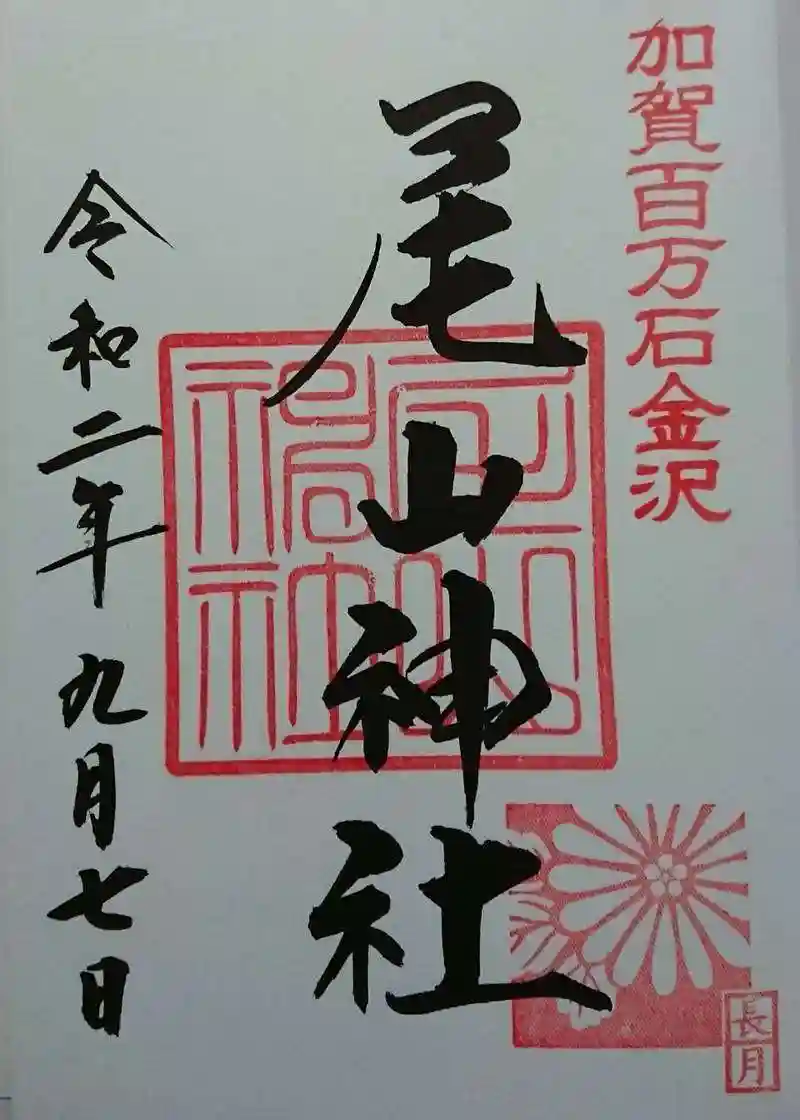 加賀百万石金沢
尾山神社
尾山神社
長月
令和二年九月七日